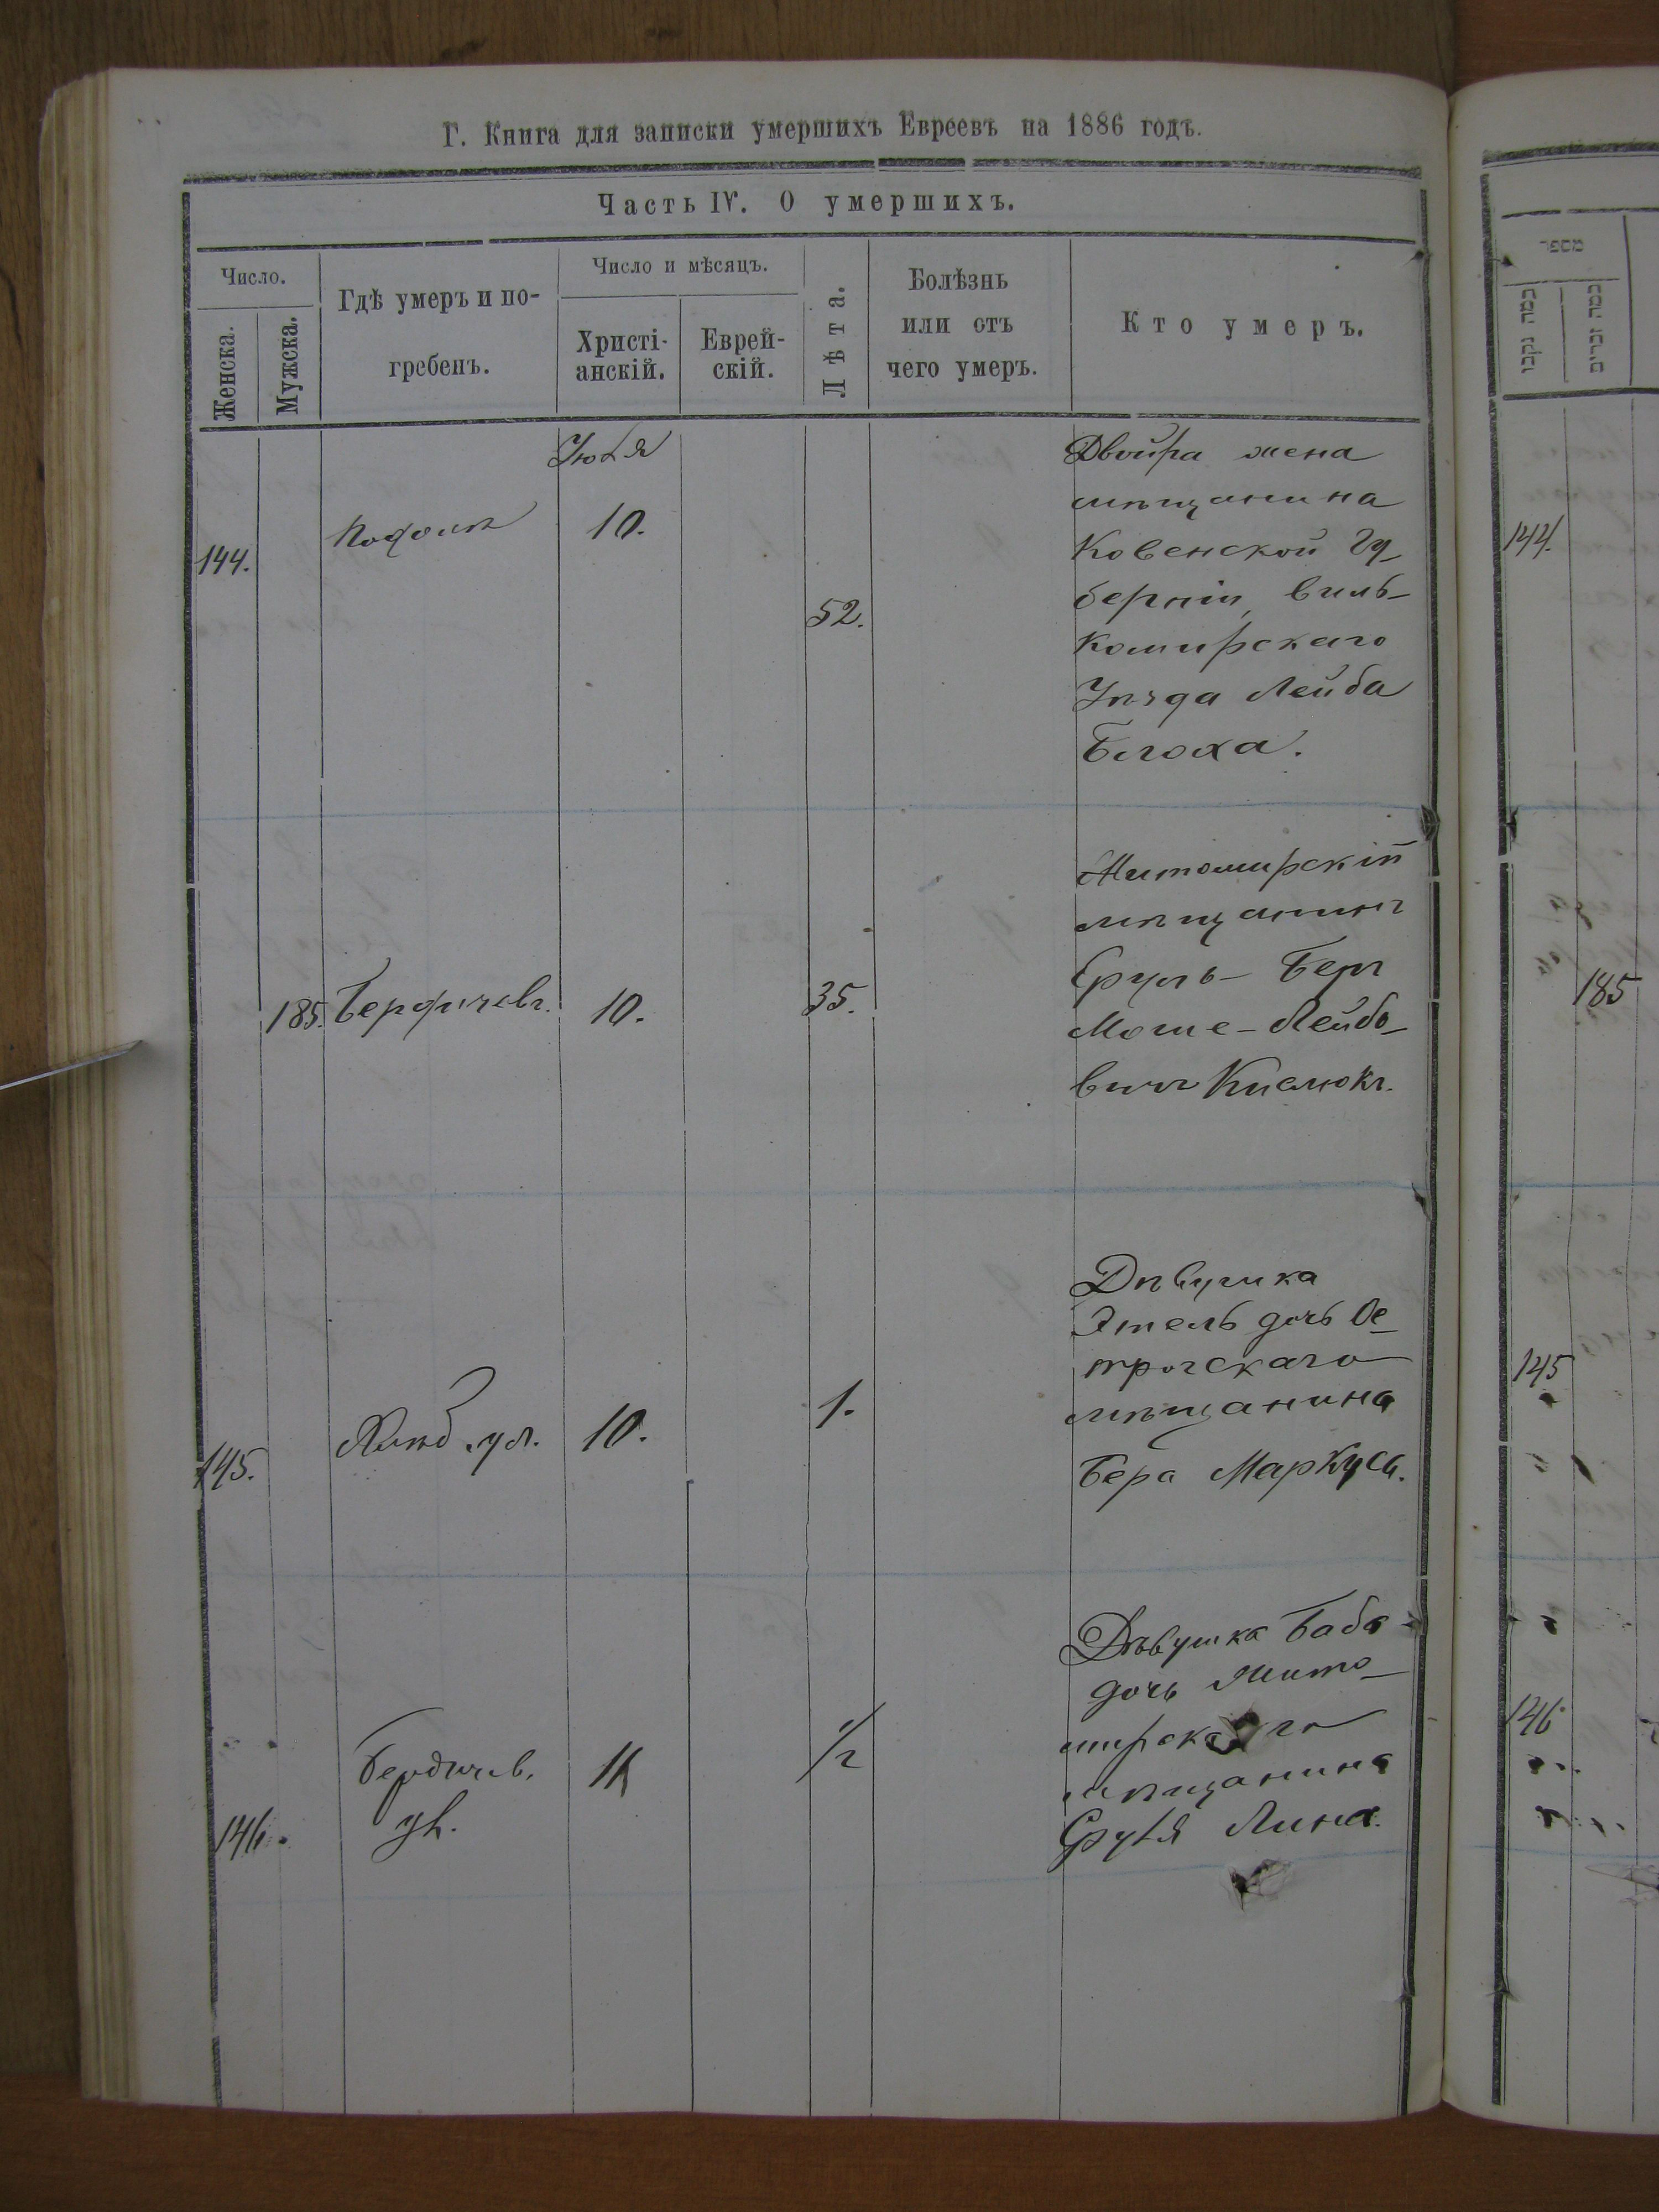 Г. Книга для записки умершихъ Евреевъ на 1886 годъ.
Часть IV. О умершихъ.
Число.
Женска.
Мужска.
Гдѣ умеръ и по-
гребенъ.
Число и мѣсяцъ.
Христі-
анскій.
Еврей-
скій.
Лѣта.
Болѣзнь
или отъ
чего умеръ.
Кто умеръ.
Іюля
144.
10.
52.
Двойра жена
мѣщанина
Ковенской Гу-
берніи, Виль-
комирскаго
Уѣзда Лейба
Блоха.
185.
Бердичевъ.
10.
35.
Житомирскій
мѣщанинъ
Сруль-Беръ
Моше-Лейбо-
вичъ
145.
ул.
10.
1.
Дѣвушка
Этель дочь Ос-
трогскаго
мѣщанина
Бера Маркуса.
146.
Бердичев.
ул.
11
1/2
Дѣвушка Баба
дочь Жито-
мирскаго
мѣщанина
Сруля Лина.
מספר
כמה נקבו
כמה זכרים
144.
185
145
146